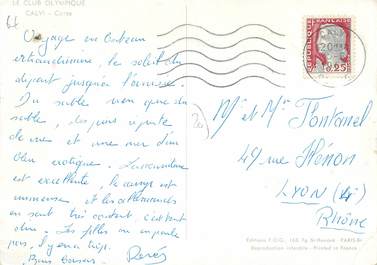 LE CLUB OLYMPIQUE
CALVI - Corse
Voyage en bateau
extraordinaire, le soleil du
départ jusqu'à l'arrivée.
Du sable rien que du
sable, des pins à perte
de vue et une mer d'un
bleu exotique. L'atmosphère
est excellente, le camp est
immense et les allemands
en sont très content c'est tant
bleu. Les filles on en parle
pas, il y en a trop.
Bons baisers René
REPUBLIQUE FRANÇAISE
0,25
Mr et Mme Fontanel
49 rue Hénon
LYON (4e)
Rhône
Editions F.O.G., 168, Fg St-Honoré PARIS-8e
Reproduction interdite - Printed in France